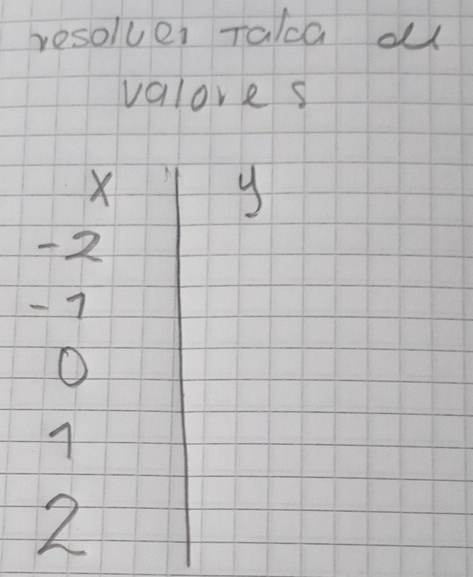 resolver Talca de
valores
x y
-2
-1
0
1
2